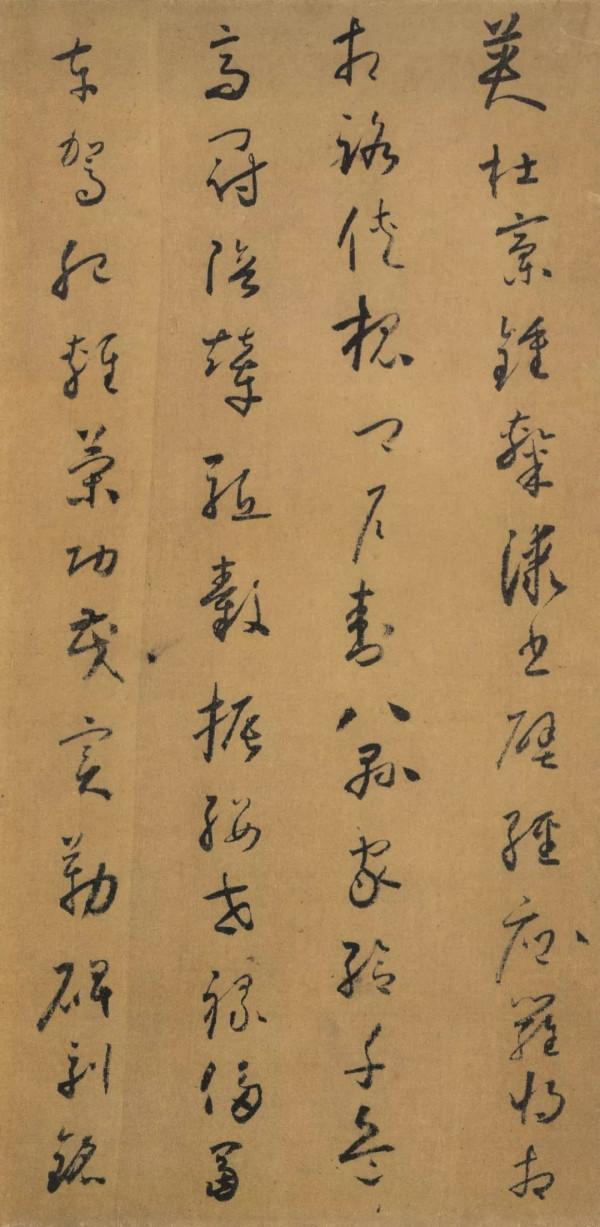 英杜稾鍾隸漆書壁經府羅將相
相路俠槐卿户封八縣家給千兵
高冠陪輦驅轂振纓世祿侈富
車駕肥輕策功茂實勒碑刻銘